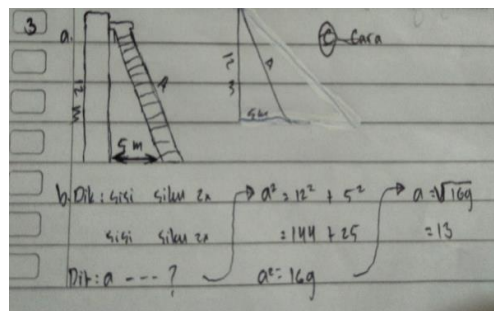 3
a.
12 m
A
5 m
12 m
A
5m
C cara
b. Dik: sisi siku2x
sisi siku2x
Dit: a ---- ?
a² = 12² + 5²
= 144 + 25
a² = 169
a = √169
= 13